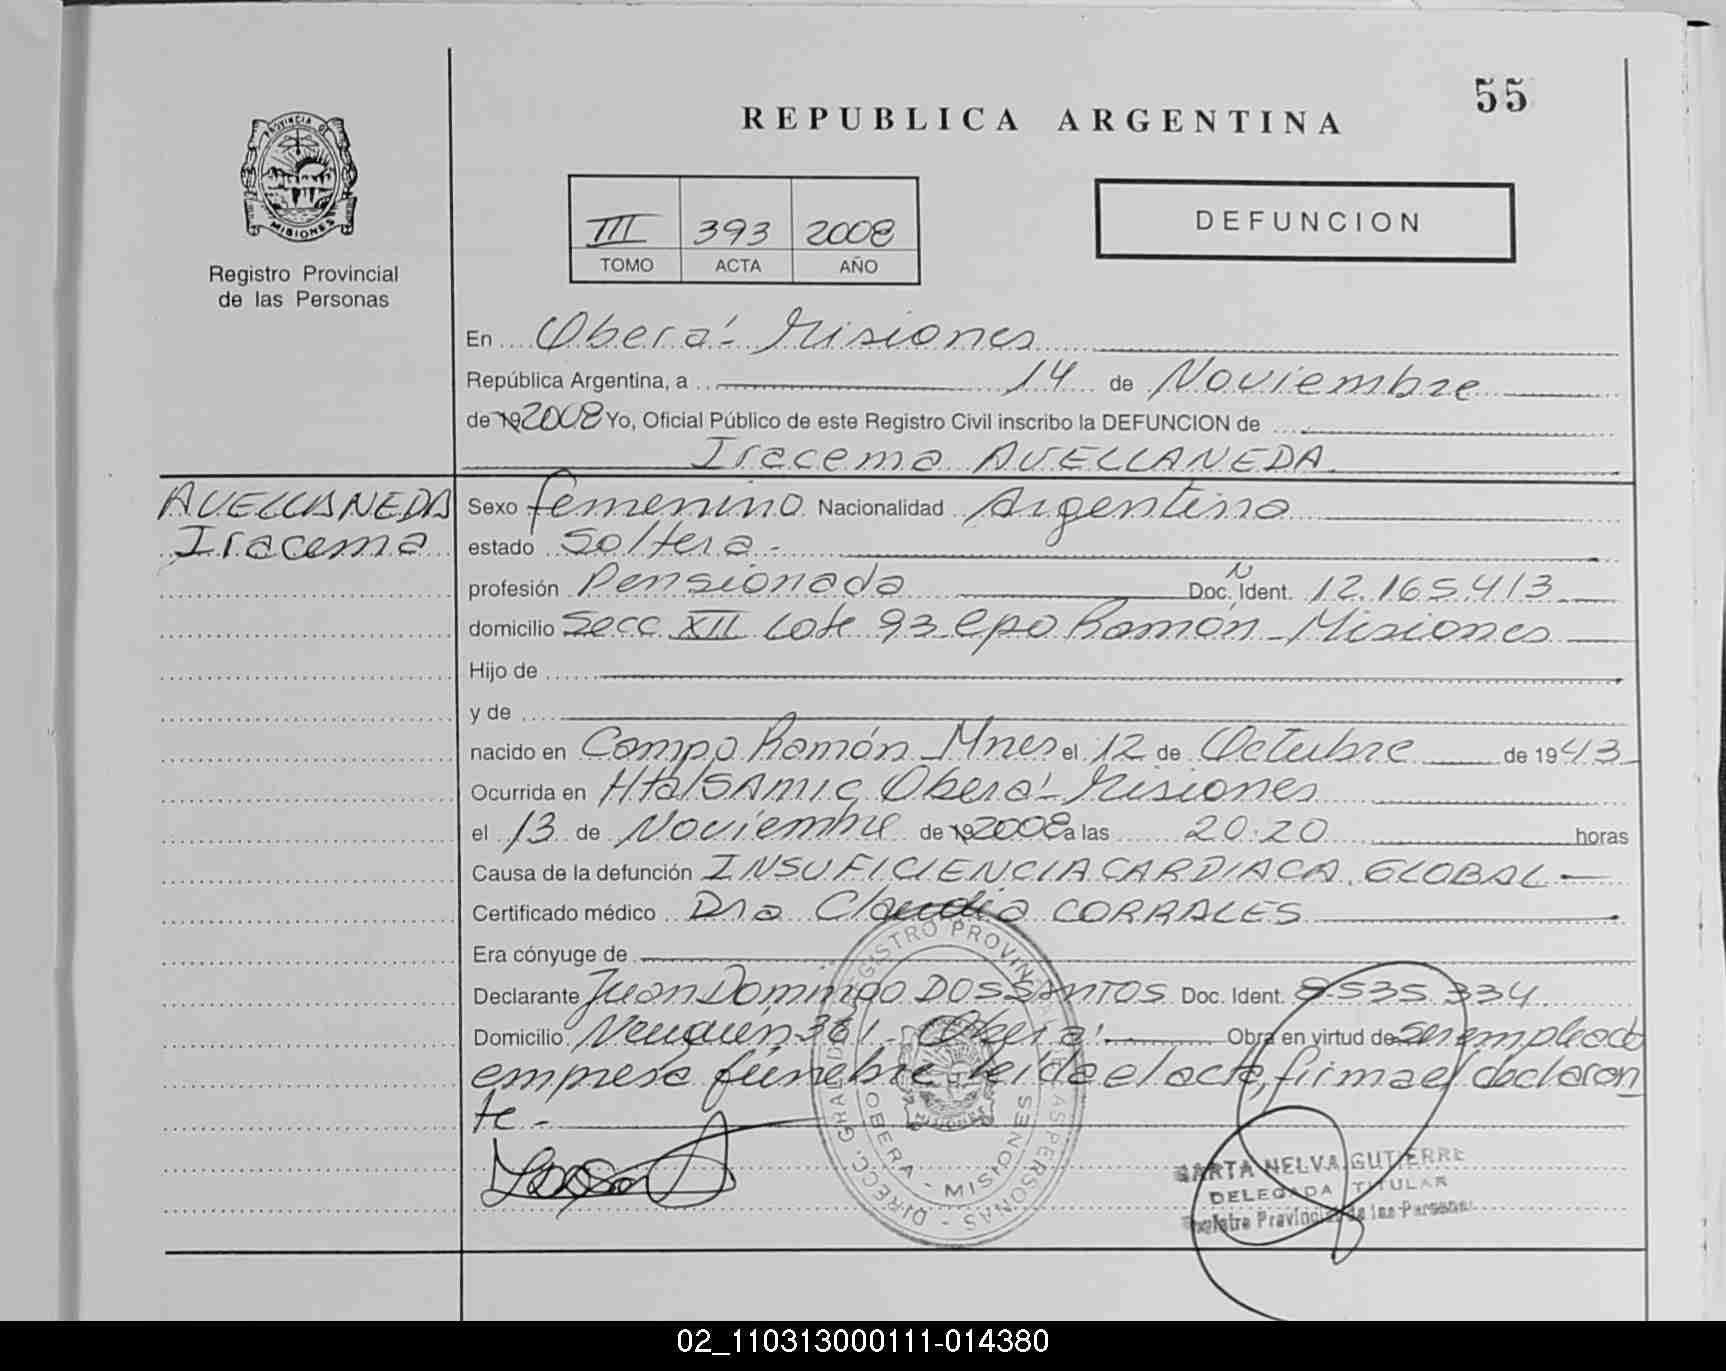 55
REPUBLICA ARGENTINA
PROVINCIA DE
MISIONES
Registro Provincial
de las Personas
III 393 2008
TOMO ACTA AÑO
DEFUNCION
En Oberá - Misiones
República Argentina, a 14 de Noviembre
de 19 2008 Yo, Oficial Público de este Registro Civil inscribo la DEFUNCION de
Iracema AVELLANEDA
AVELLANEDA
Iracema
Sexo femenino Nacionalidad Argentina
estado Soltera -
profesión Pensionada Doc. N Ident. 12.165.413
domicilio Secc XII Lote 93 Cpo Ramón - Misiones
Hijo de
y de
nacido en Campo Ramón Mnes el 12 de Octubre de 1943
Ocurrida en Htal SAMIC Oberá - Misiones
el 13 de Noviembre de 19 2008 a las 20:20 horas
Causa de la defunción INSUFICIENCIA CARDIACA GLOBAL -
Certificado médico Dra Claudia CORRALES
Era cónyuge de
Declarante Juan Domingo DOS SANTOS Doc. Ident. 8.535.334
Domicilio Neuquén 361 - Oberá - Obra en virtud de ser empleado
empresa fúnebre - leída el acta, firma el declaran
te -
DIRECC. GRAL. DE REGISTRO PROVINCIAL DE LAS PERSONAS -
OBERA - MISIONES
MISIONES
MARTA NELVA GUTIERRE
DELEGADA TITULAR
Registro Provincial de las Personas
02_110313000111-014380